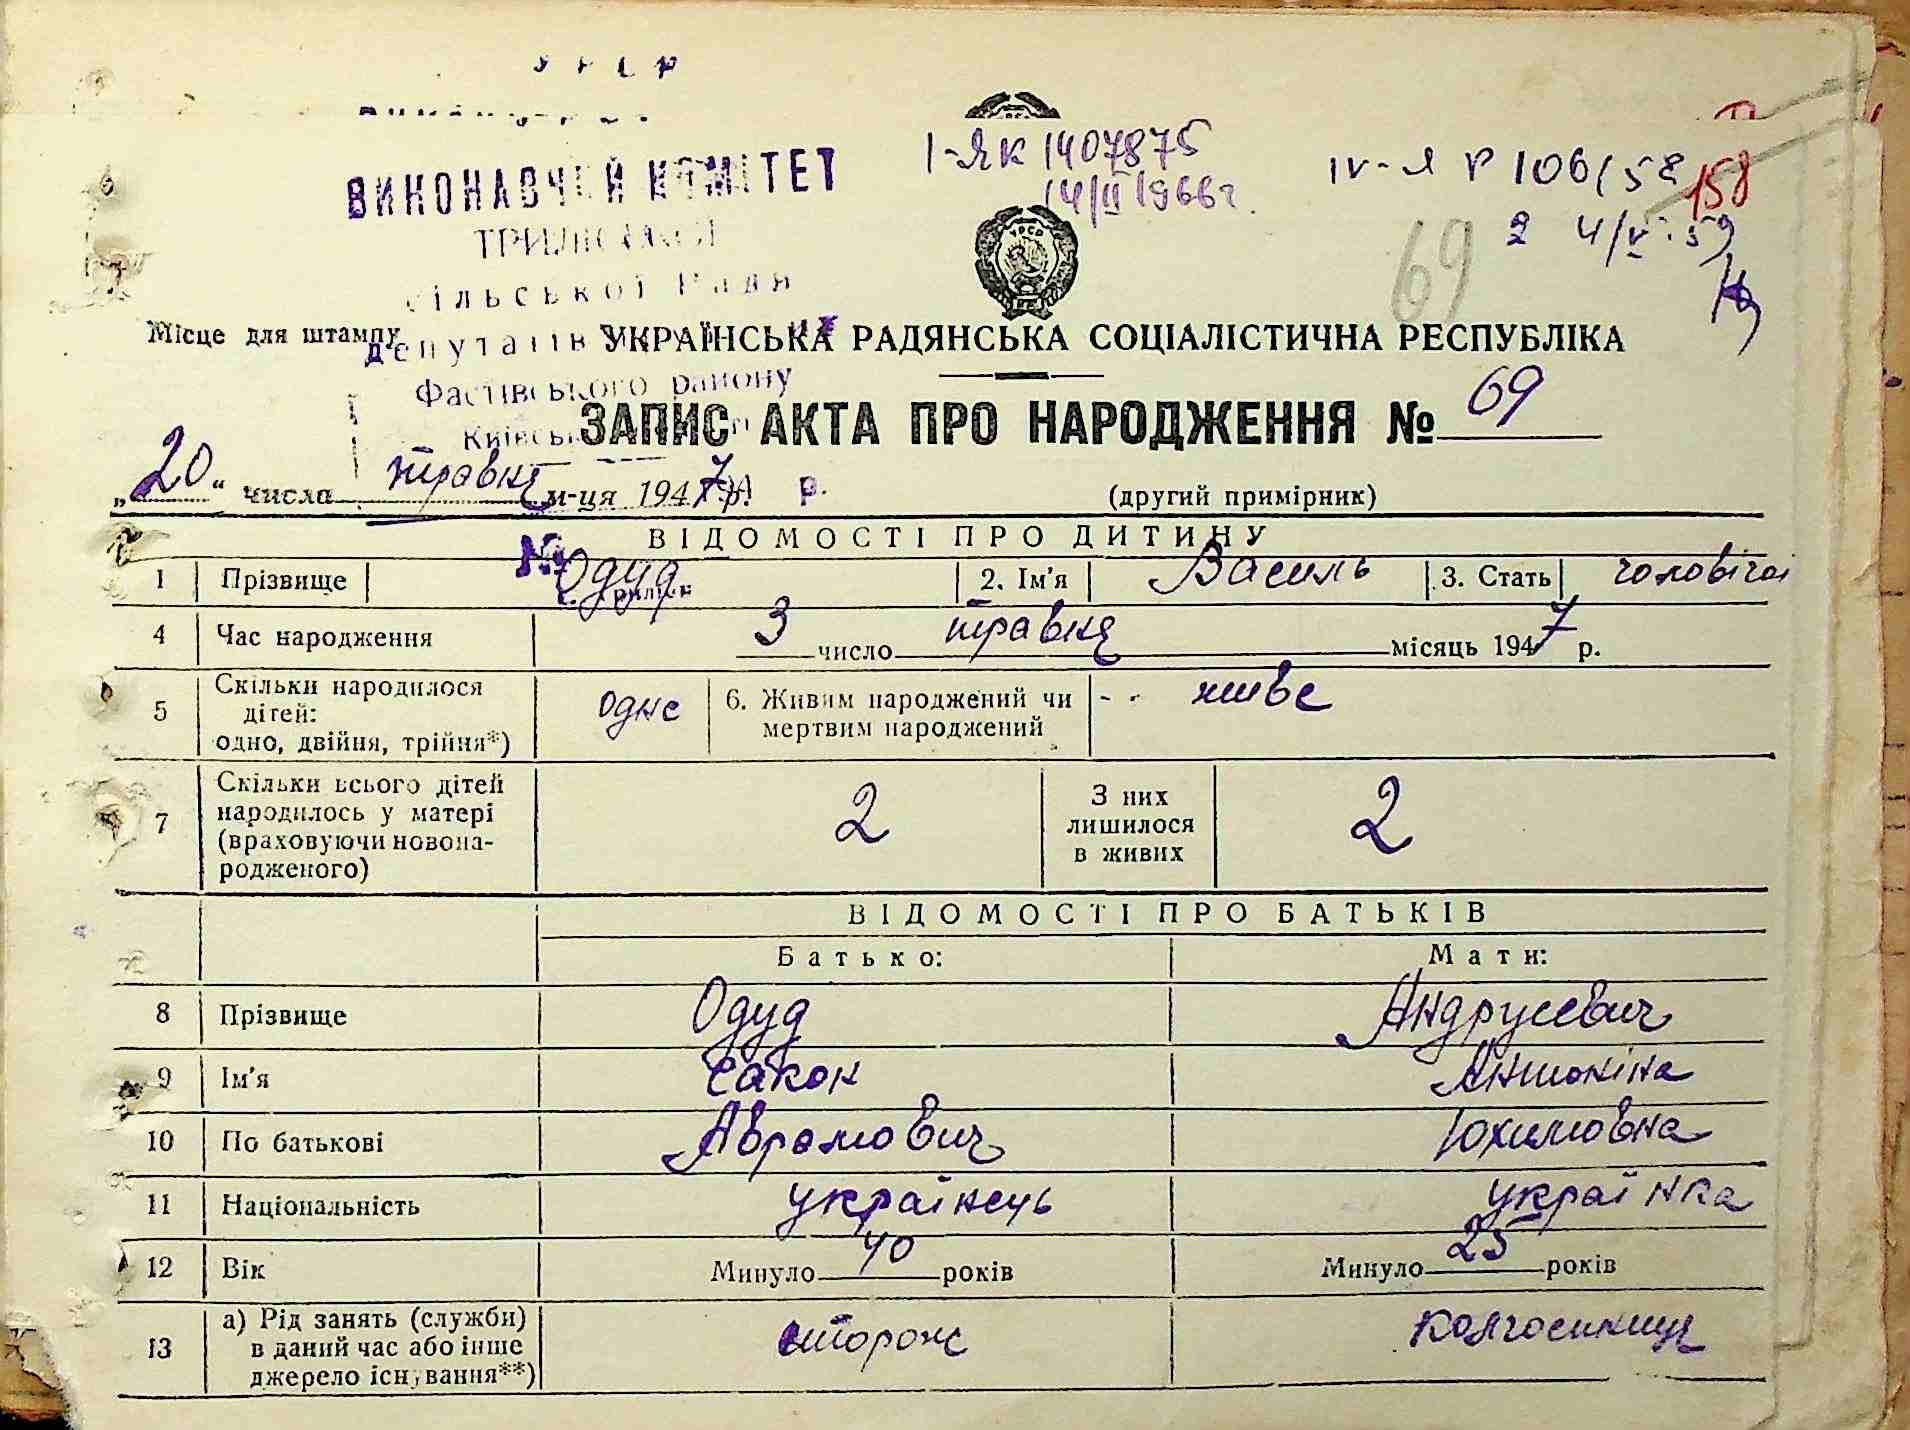 ВИКОНАВЧИЙ КОМІТЕТ
І-ЯК 1407875
14/ІІ 1966 г.
ІV-Я
158
4/V-59
69
сільської Ради
Місце для штампу
депутатів
УКРАЇНСЬКА РАДЯНСЬКА СОЦІАЛІСТИЧНА РЕСПУБЛІКА
Фастівського району
ЗАПИС АКТА ПРО НАРОДЖЕННЯ № 69
„20“ числа травня м-ця 1947 р.
(другий примірник)
ВІДОМОСТІ ПРО ДИТИНУ
1 Прізвище Одуд 2. Ім'я Василь 3. Стать
4 Час народження 3 число травня місяць 1947 р.
5 Скільки народилося дітей: одно, двійня, трійня*) одне 6. Живим народжений чи мертвим народжений живе
7 Скільки всього дітей народилось у матері (враховуючи новона-родженого) 2 З них лишилося в живих 2
ВІДОМОСТІ ПРО БАТЬКІВ
Батько: Мати:
8 Прізвище Одуд Андрусевич
9 Ім'я Сакон Антоніна
10 По батькові Аврамович Юхимовна
11 Національність українець українка
12 Вік Минуло 40 років Минуло 25 років
13 а) Рід занять (служби) в даний час або інше джерело існування**) сторож колгоспниця